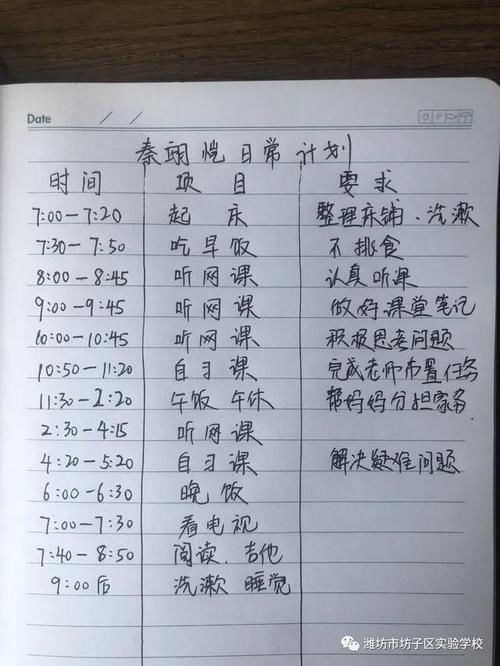 Date / /
秦翊恺 日常 计划
时间 项目 要求
7:00-7:20 起 床 整理床铺、洗漱
7:30-7:50 吃早饭 不挑食
8:00-8:45 听网课 认真听课
9:00-9:45 听网课 做好课堂笔记
10:00-10:45 听网课 积极思考问题
10:50-11:20 自习课 完成老师布置任务
11:30-2:20 午饭 午休 帮妈妈分担家务
2:30-4:15 听网课
4:20-5:20 自习课 解决疑难问题
6:00-6:30 晚饭
7:00-7:30 看电视
7:40-8:50 阅读、吉他
9:00后 洗漱 睡觉
潍坊市坊子区实验学校